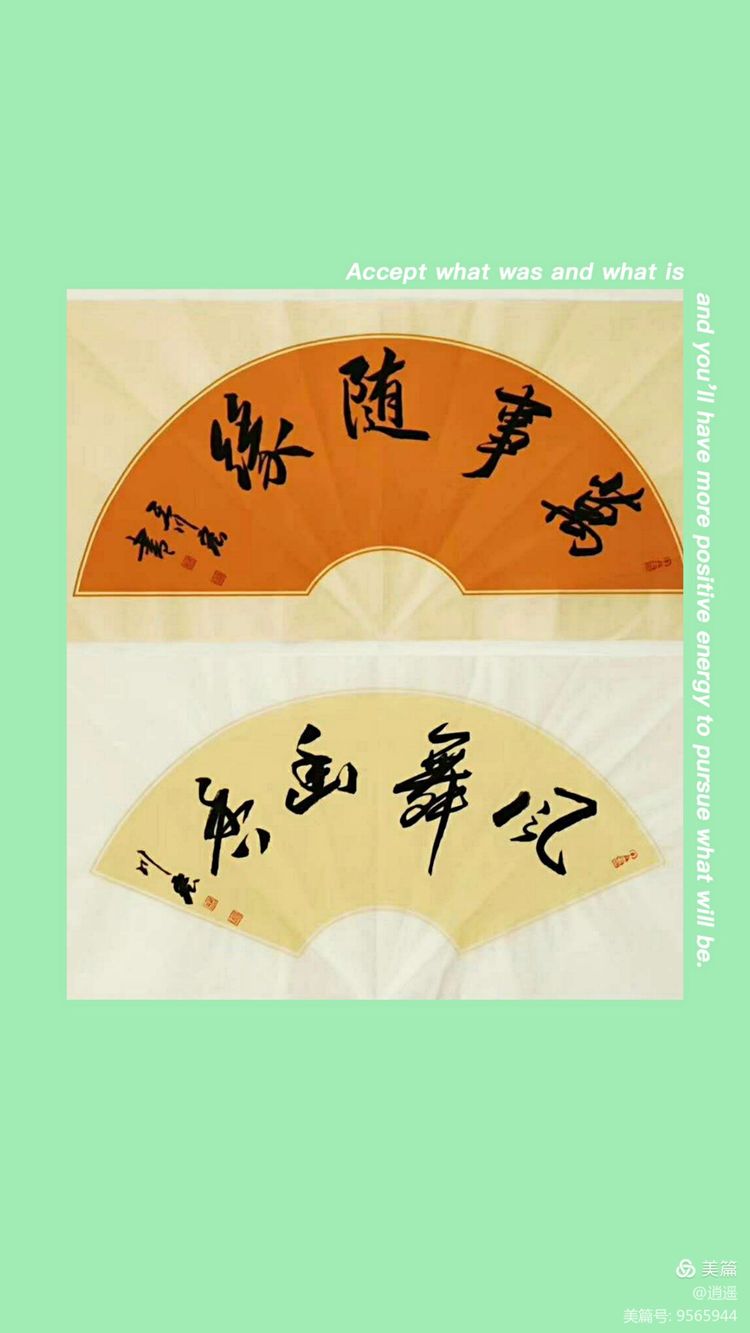 Accept what was and what is
and you'll have more positive energy to pursue what will be.
萬事随緣
川
書
风舞幽
川
美篇
@逍遥
美篇号: 9565944